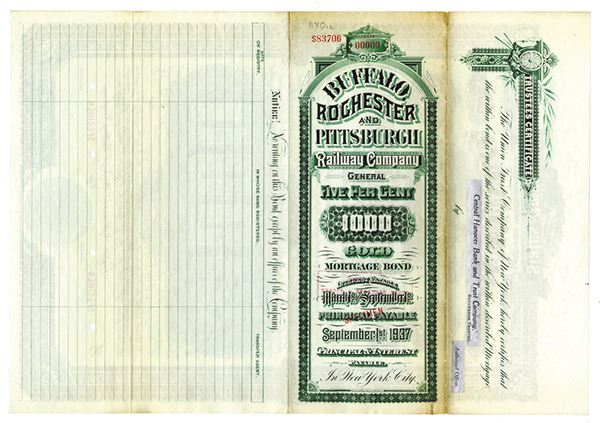 DATE
OF REGISTRY.
IN WHOSE NAME REGISTERED.
TRANSFER AGENT.
Notice! No writing on this Bond except by an officer of the Company.
S83706
00000
BUFFALO
ROCHESTER
AND
PITTSBURGH
Railway Company
GENERAL
FIVE PER CENT
1000
GOLD
MORTGAGE BOND
INTEREST PAYABLE
March 1st and September 1st
PRINCIPAL PAYABLE
September 1st 1937
PRINCIPAL & INTEREST
PAYABLE
In New York City.
TRUSTEE'S CERTIFICATE
The Union Trust Company of New York hereby certifies that
the within bond is one of the series described in the within described Mortgage.
Central Hanover Bank and Trust Company,
SUCCESSOR TRUSTEE
by
Authorized Officer